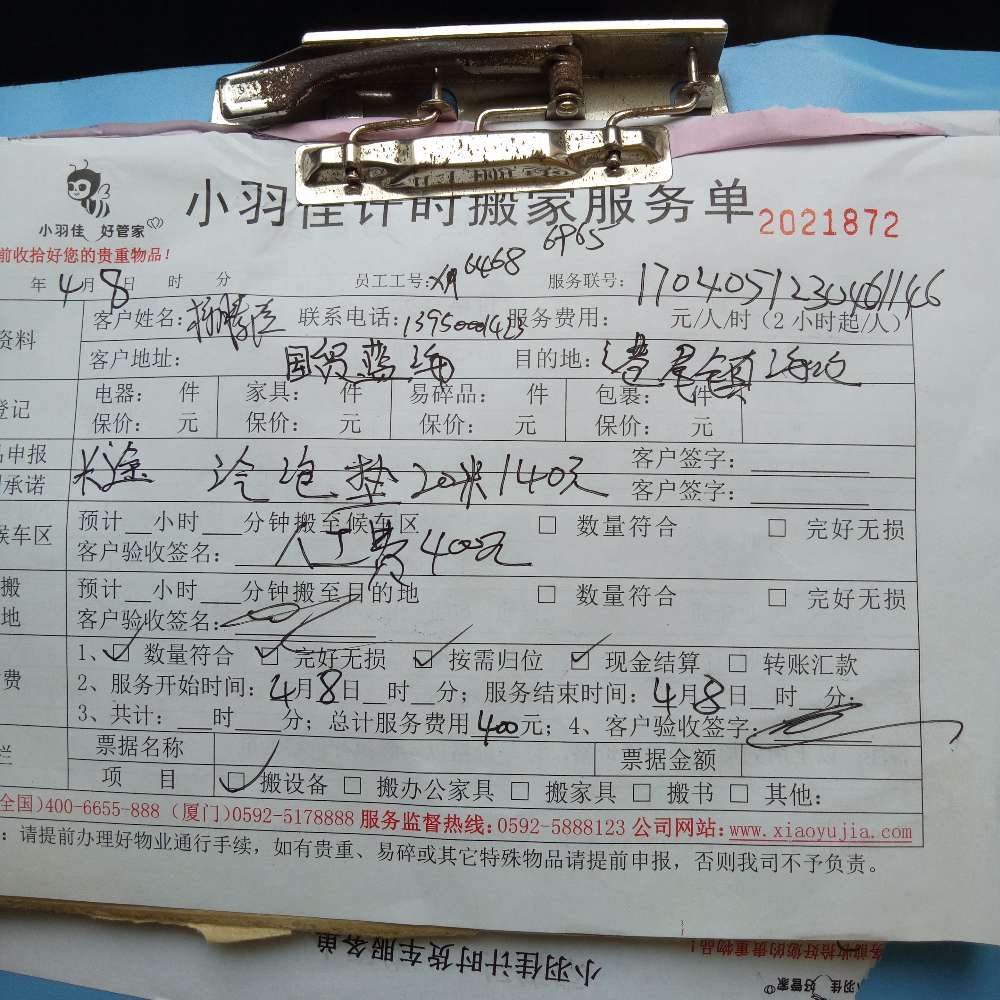 小羽佳计时搬家服务单 2021872
小羽佳 好管家
前收拾好您的贵重物品!
6965
年4月8日 时 分 员工工号: 6468 服务联号: 1704051230461146
资料 客户姓名: 联系电话:13950001423 服务费用: 元/人/时（2小时起/人）
客户地址: 国贸蓝海 目的地:
登记 电器: 件 家具: 件 易碎品: 件 包裹: 件
保价: 元 保价: 元 保价: 元 保价: 元
申报 客户签字:
承诺 长途 冷泡垫20米140元 客户签字:
候车区 预计__小时__分钟搬至候车区 □ 数量符合 □ 完好无损
客户验收签名: 人工费400元
搬 预计__小时__分钟搬至目的地 □ 数量符合 □ 完好无损
地 客户验收签名:
1、☑ 数量符合 ☑ 完好无损 ☑ 按需归位 ☑ 现金结算 □ 转账汇款
费 2、服务开始时间: 4月8日__时__分; 服务结束时间: 4月8日__时__分;
3、共计:__时__分; 总计服务费用400元; 4、客户验收签字:
栏 票据名称 票据金额
项 目 ☑ 搬设备 □ 搬办公家具 □ 搬家具 □ 搬书 □ 其他:
全国)400-6655-888（厦门)0592-5178888 服务监督热线:0592-5888123 公司网站:www.xiaoyujia.com
: 请提前办理好物业通行手续，如有贵重、易碎或其它特殊物品请提前申报，否则我司不予负责。
小羽佳计时货车服务单
收拾好您的贵重物品!
小羽佳 好管家